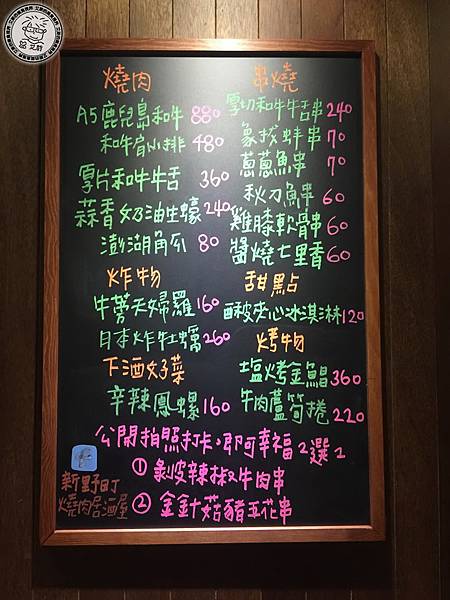 燒肉
A5鹿兒島和牛 880
和牛肩小排 480
厚片和牛牛舌 360
蒜香奶油生蠔 240
澎湖角瓜 80
炸物
牛蒡天婦羅 160
日本炸牡蠣 260
下酒好菜
辛辣鳳螺 160
串燒
厚切和牛牛舌串 240
象拔蚌串 70
蔥蔥魚串 70
秋刀魚串 60
雞膝軟骨串 60
醬燒七里香 60
甜點
酥皮夾心冰淇淋 120
烤物
塩烤金鯧 360
牛肉蘆筍捲 220
公開拍照打卡,即可幸福2選1
① 剝皮辣椒牛肉串
② 金針菇豬五花串
新野町
燒肉居酒屋